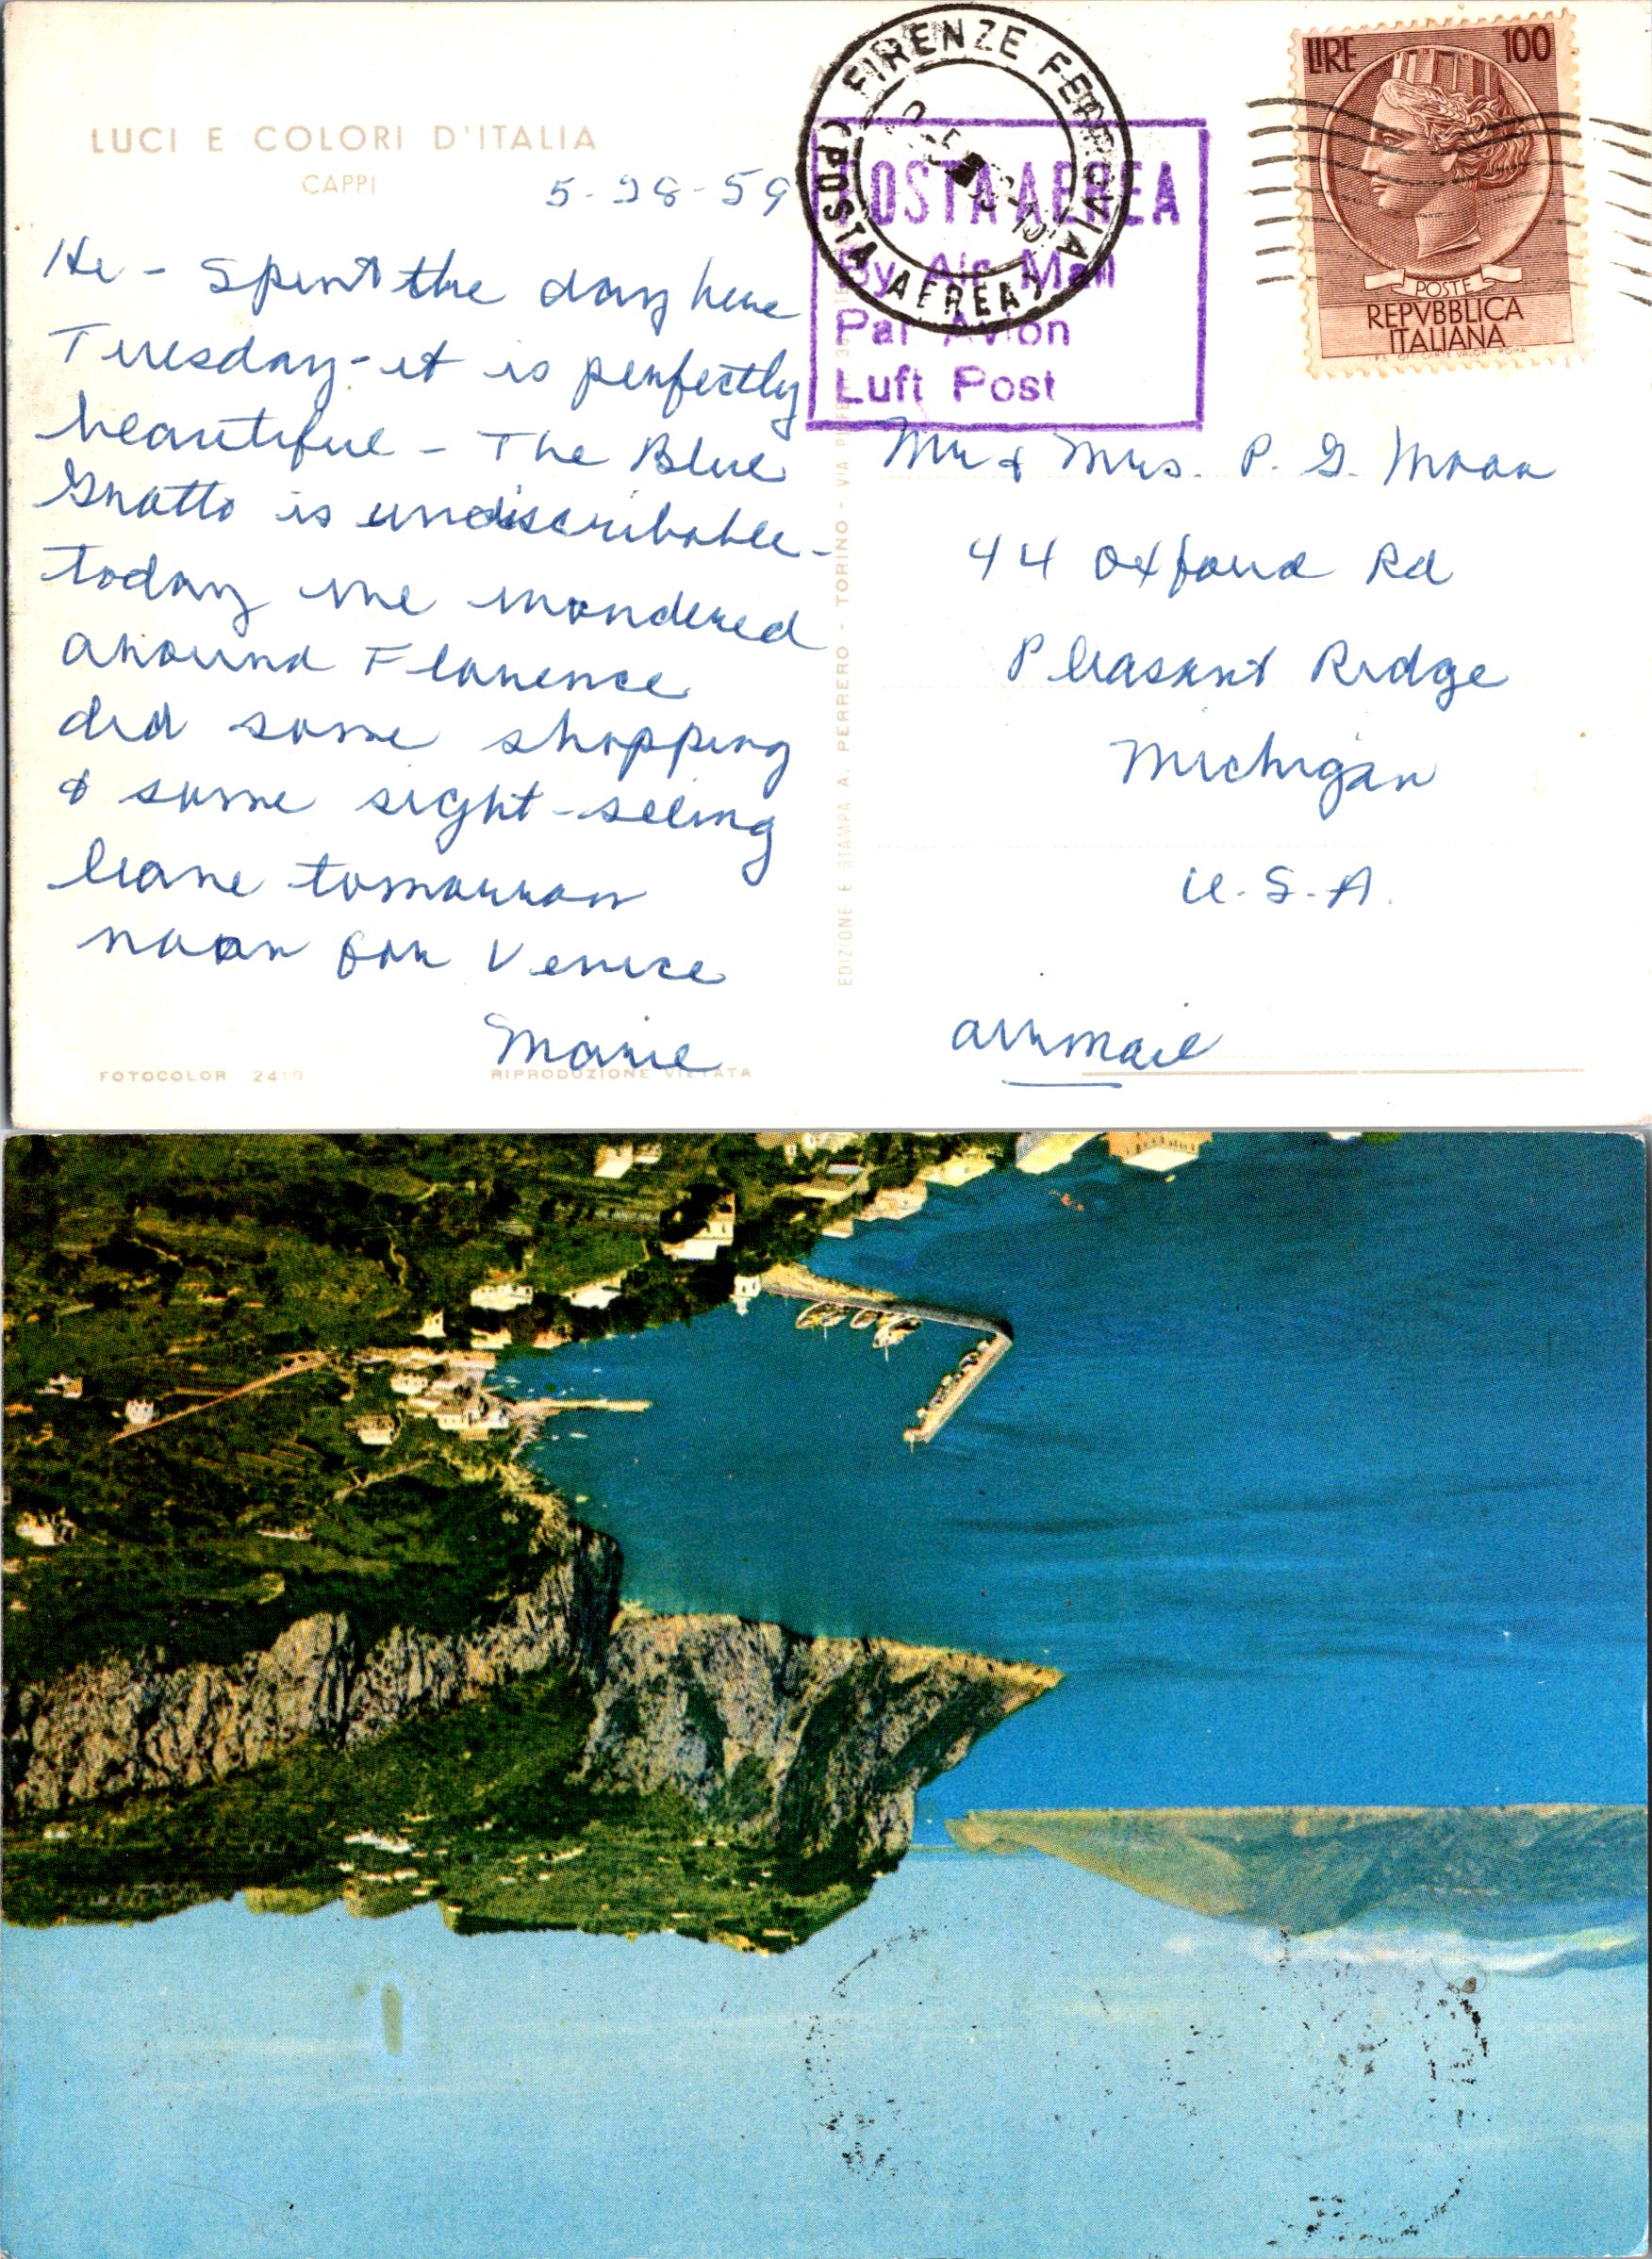 LUCI E COLORI D'ITALIA
CAPPI
5-28-59
Hi - Spent the day here
Tuesday - it is perfectly
beautiful - The Blue
Grotto is undiscribable -
today we wandered
around Florence
did some shopping
& some sight-seeing
leave tomorrow
noon for Venice
Marie
FOTOCOLOR 2419
RIPRODUZIONE VIETATA
EDIZIONE E STAMPA A. PERRERO - TORINO - VIA
FIRENZE FERROVIA
(POSTA AEREA)
POSTA AEREA
By Air Mail
Par Avion
Luft Post
LIRE 100
POSTE
REPVBBLICA
ITALIANA
I.P.S. OFF. CARTE VALORI-ROMA
Mr & Mrs. P. G. Moon
44 Oxford Rd
Pleasant Ridge
Michigan
U.S.A.
airmail